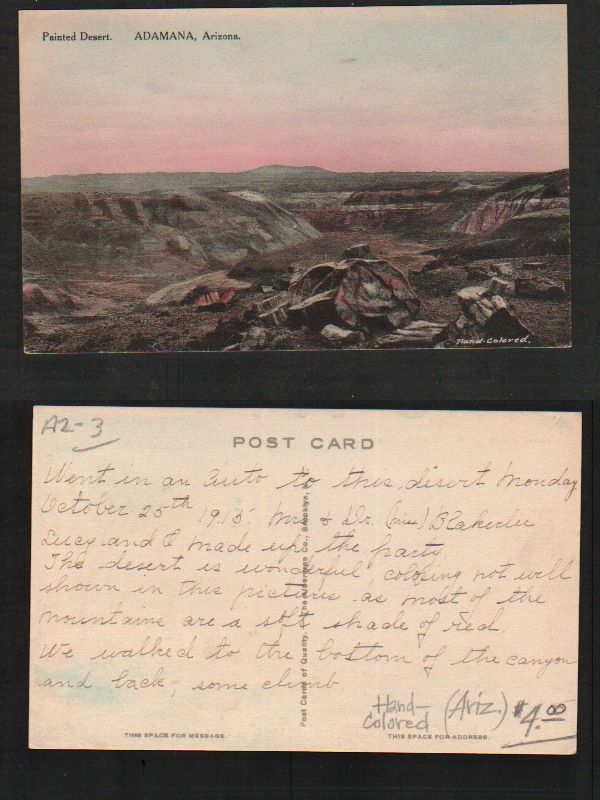 Painted Desert. ADAMANA, Arizona.
Hand-Colored.
AZ-3
POST CARD
Went in an auto to this desert Monday
October 25th 1915. Mrs & Dr. (miss) Blakeslee
Lucy and I made up the party.
The desert is wonderful, coloring not well
shown in this picture as most of the
mountains are a soft shade of red.
We walked to the bottom of the canyon
and back, some climb
Post Cards of Quality. The Albertype Co., Brooklyn, N.
Hand-Colored (Ariz.) $4.00
THIS SPACE FOR MESSAGE. THIS SPACE FOR ADDRESS.